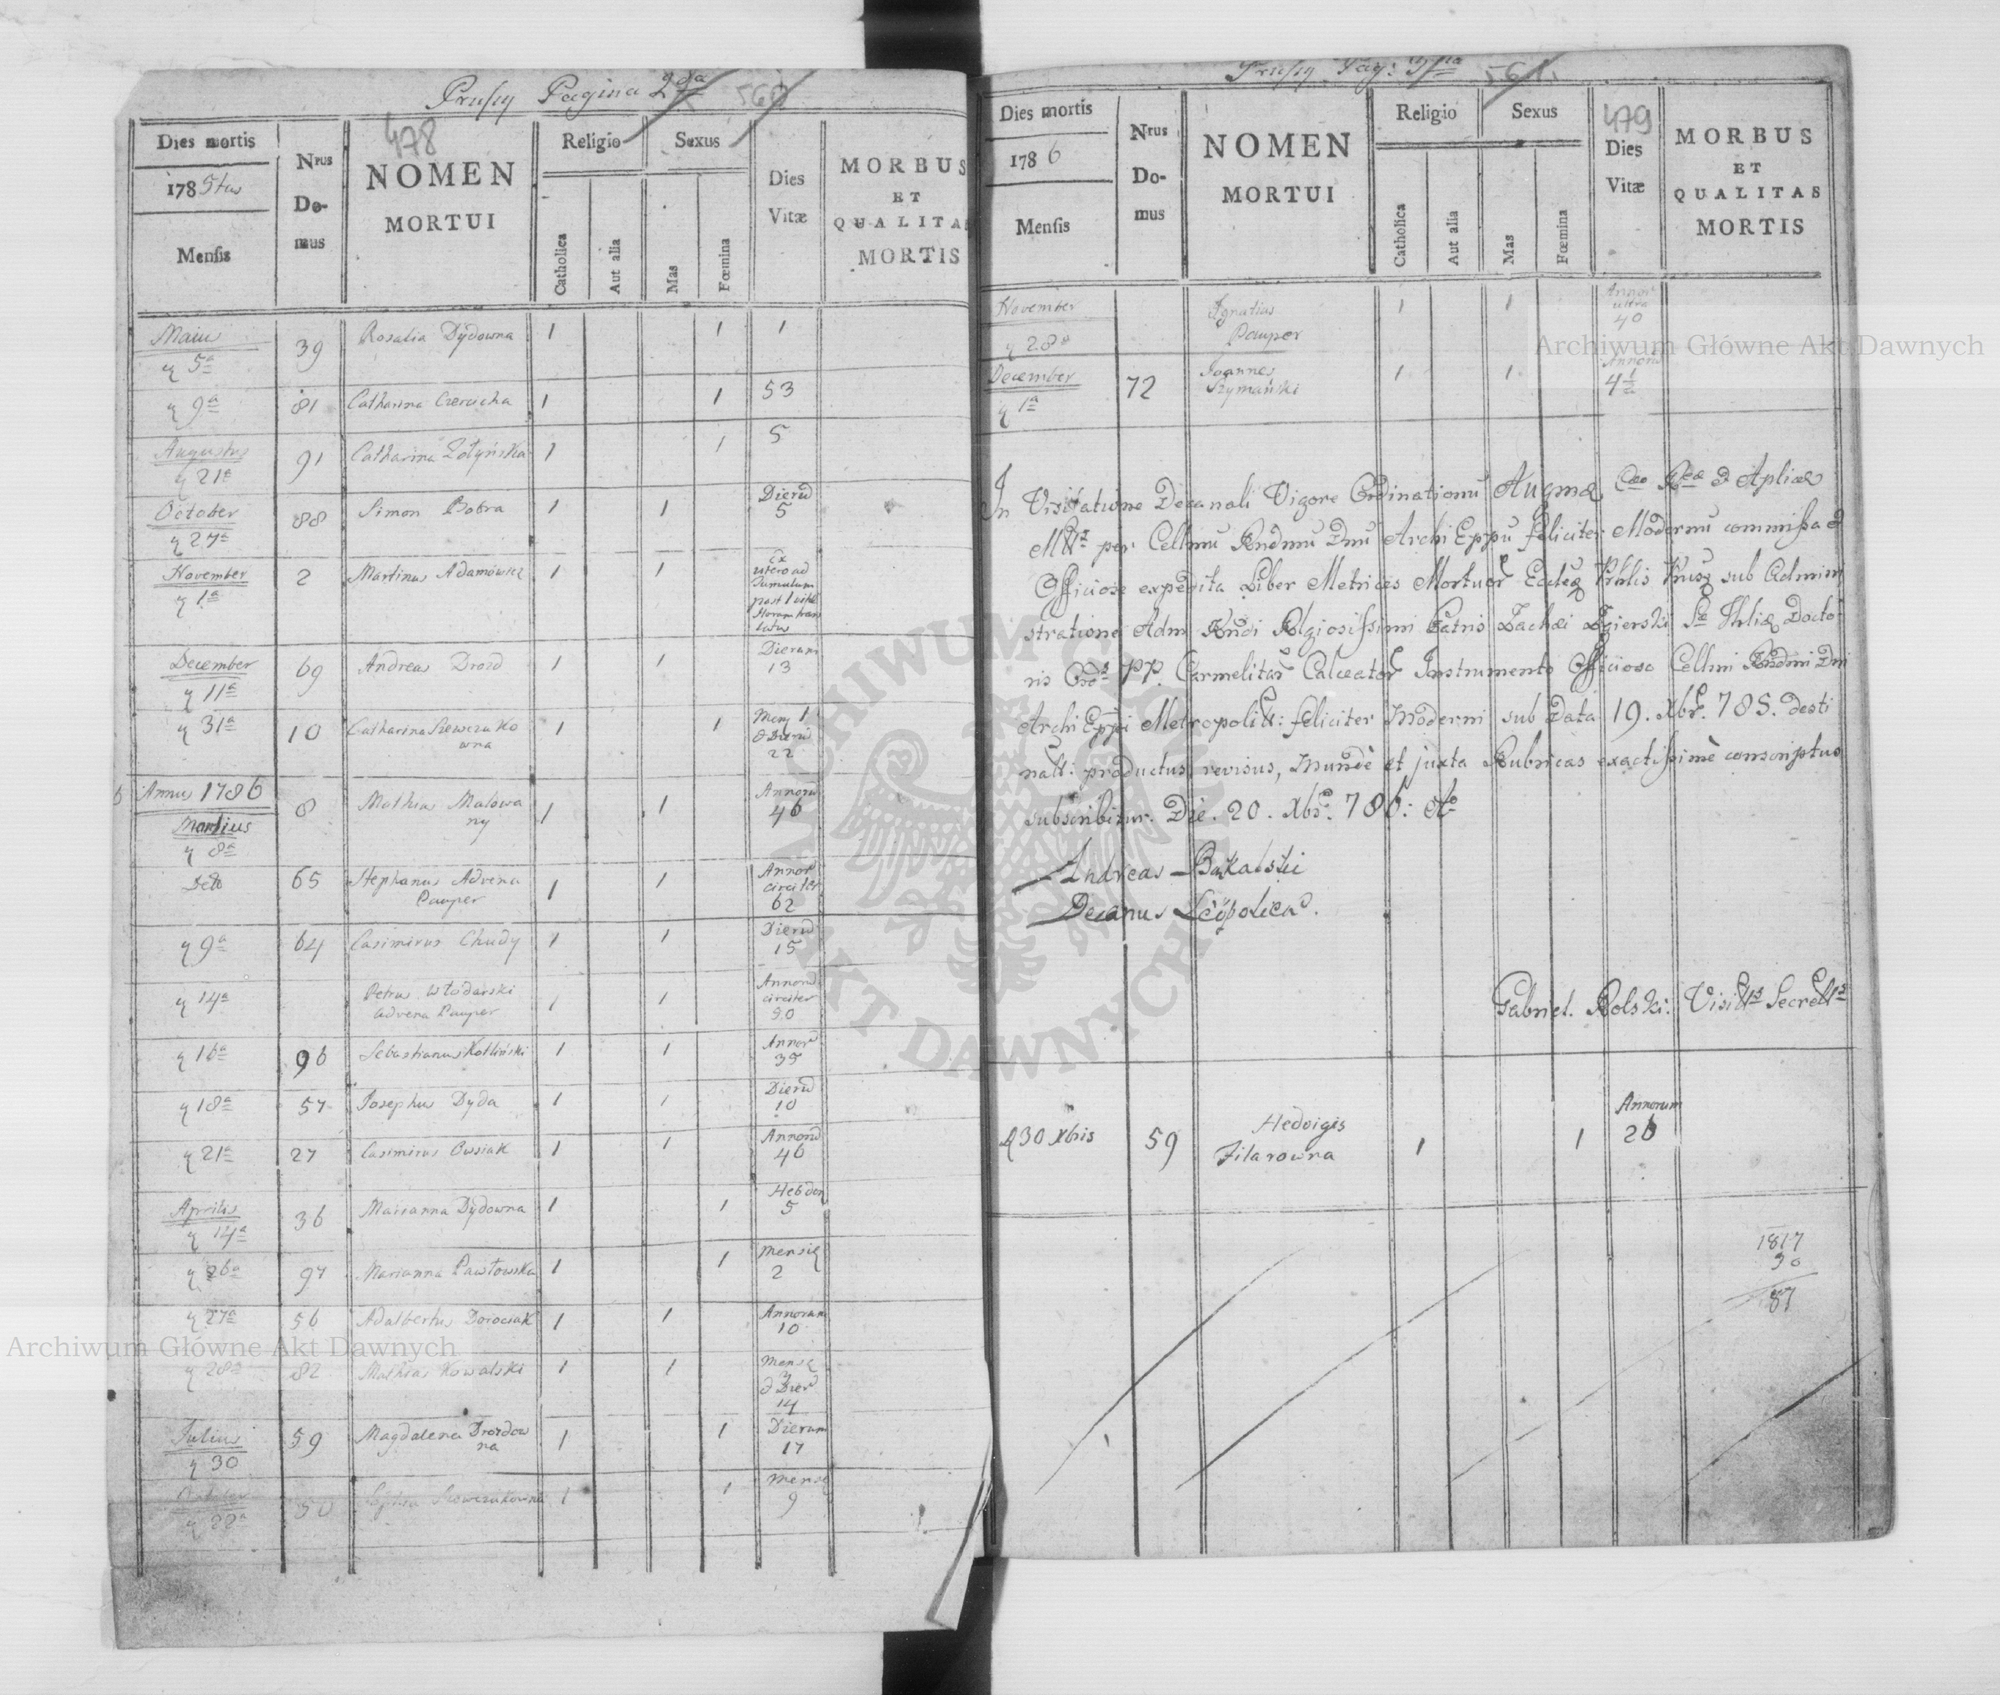 Prusy Pagina 2da 560
478
Dies mortis
1785tus
Mensis
Nrus Domus
NOMEN
MORTUI
Religio
Catholica
Aut alia
Sexus
Mas
Fœmina
Dies
Vitæ
MORBUS
ET
QUALITAS
MORTIS
Maius 5a 39 Rosalia Dydowna 1 1 1
9a 81 Catharina Czercicha 1 1 53
Augustus 21a 91 Catharina Zołyńska 1 1 5
October 27a 88 Simon Bobra 1 1 Dierū 5
November 1a 2 Martinus Adamowicz 1 1 Ex utero ad Tumulum post 1 Horam translatus
December 11a 69 Andreas Drozd 1 1 Dierum 13
31a 10 Catharina Szewczukowna 1 1 Mens 1 Dierū 22
Annus 1786
Martius 8a 8 Mathias Malowany 1 1 Annorū 46
Detto 65 Stephanus Advena Pauper 1 1 Annor circiter 62
9a 64 Casimirus Chudy 1 1 Dierū 15
14a Petrus Włodarski advena Pauper 1 1 Annorū circiter 90
16a 96 Sebastianus Kotliński 1 1 Annor 35
18a 57 Josephus Dyda 1 1 Dierū 10
21a 27 Casimirus Owsiak 1 1 Annorū 46
Aprilis 14a 36 Marianna Dydowna 1 1 Hebdom 5
26a 97 Marianna Pawłowska 1 1 Mensiū 2
27a 56 Adalbertus Dorociak 1 1 Annorum 10
28a 82 Mathias Kowalski 1 1 Mens Dierū 14
Julius 30 59 Magdalena Drozdowna 1 1 Dierum 17
October 22a 50 Szewczukowna 1 1 Mensiū 9
Prusy Pag: 3tia 561
479
Dies mortis
1786
Mensis
Nrus Domus
NOMEN
MORTUI
Religio
Catholica
Aut alia
Sexus
Mas
Fœmina
Dies
Vitæ
MORBUS
ET
QUALITAS
MORTIS
November 28a Ignatius Pauper 1 1 Annor ultra 40
December 1a 72 Joannes Szymański 1 1 Annorū 4 1/2
In Visitatione Decanali Vigore Ordinationū Augmæ Cæo Reæ & Aplicæ
Mttis per Cellmū Rndmū Dnū Archi Eppū feliciter Modernū commissa &
Officiose expedita Liber Metrices Mortuor Ecclæ Prhlis Prusy sub Admini
stratione Adm Rndi Rlgiosissimi Patris Zachæi Zgierski Sæ Thliæ Docto
ris Ords PP. Carmelitar Calceator Instrumento Officioso Cellmi Rndmi Dni
Archi Eppi Metropolitt: feliciter Moderni sub Data 19. Xbr. 785. desti
natt: productus, revisus, Mundè et juxta Rubricas exactissimè conscriptus
subscribitur. Die. 20. Xbr. 786:
Andreas Bakalski
Decanus Leopolien.
Gabriel Rolski: Visittis Secrettis
30 Xbris 59 Hedvigis Filarowna 1 1 Annorum 26
1817
30
87
Archiwum Główne Akt Dawnych
Archiwum Główne Akt Dawnych
ARCHIWUM GŁÓWNE AKT DAWNYCH